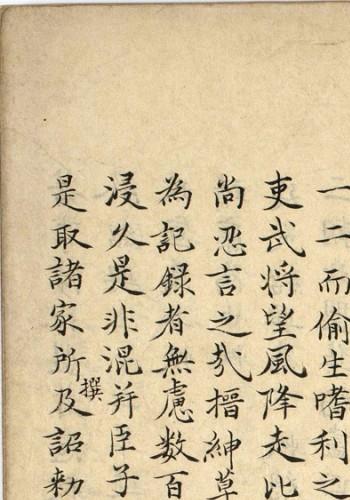 一二而偷生嗜利之
吏武将望風降走比
尚忍言之㢤搢紳草
為記録者無慮数百
浸久是非混并臣子
是取諸家所撰及詔勅